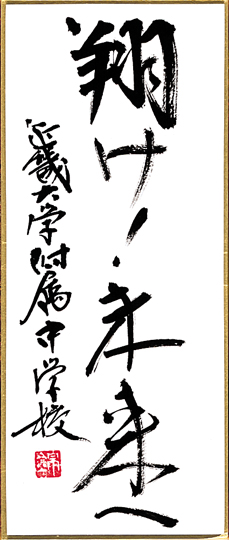 翔け!未来へ
近畿大学附属中学校